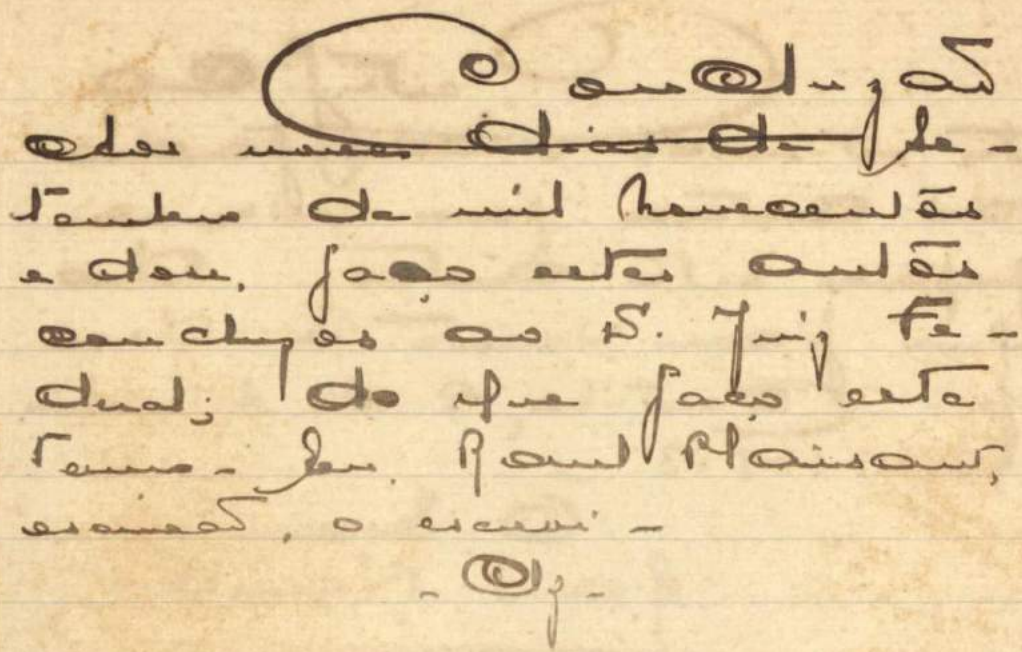 Concluzão
Aos nove dias de Se-
tembro de mil novecentos
e dous, faço estes autos
concluzos ao S. Juiz Fe-
deral; do que faço este
termo. Eu Raul Plaisant,
escrivão, o escrevi -
- Clz -